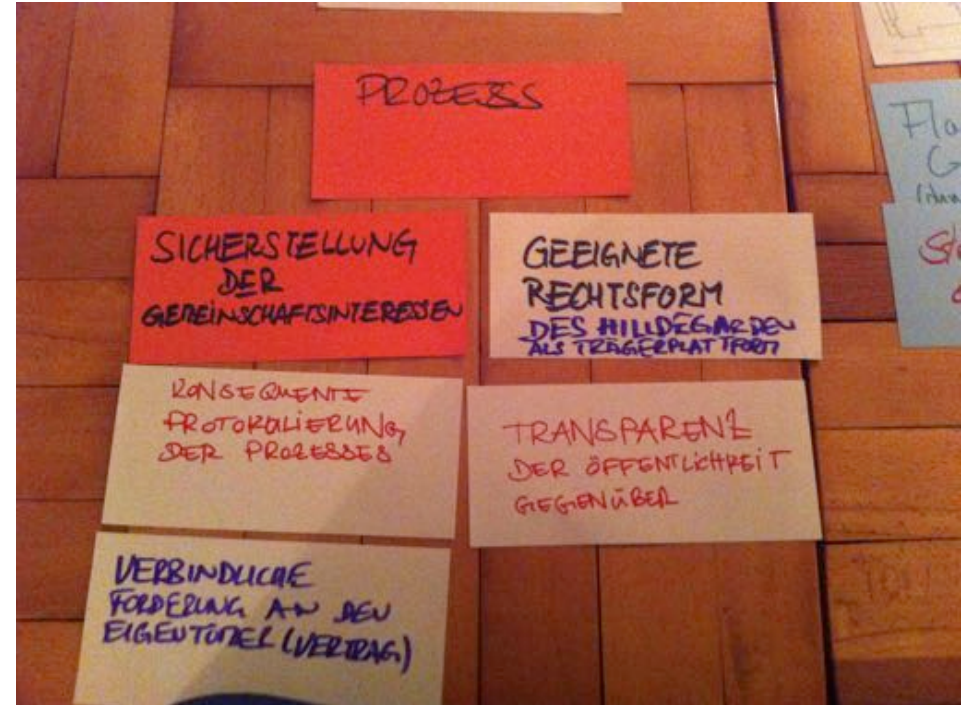 PROZESS
SICHERSTELLUNG
DER
GEMEINSCHAFTSINTERESSEN
GEEIGNETE
RECHTSFORM
DES HILLDEGARDEN
ALS TRÄGERPLATTFORM
KONSEQUENTE
PROTOKOLIERUNG
DER PROZESSES
TRANSPARENZ
DER ÖFFENTLICHKEIT
GEGENÜBER
VERBINDLICHE
FORDERUNG AN DEN
EIGENTÜMER (VERTRAG)